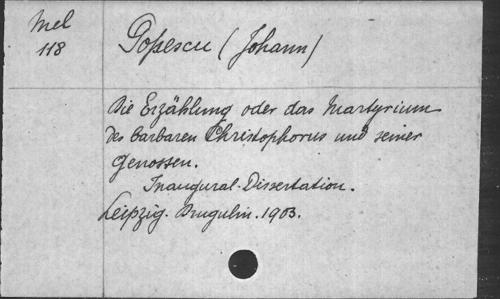 Mel
118
Popescu (Johann)
Die Erzählung oder das Martyrium
des barbaren Christophorus und seiner
Genossen.
Inaugural-Dissertation.
Leipzig. Drugulin. 1903.